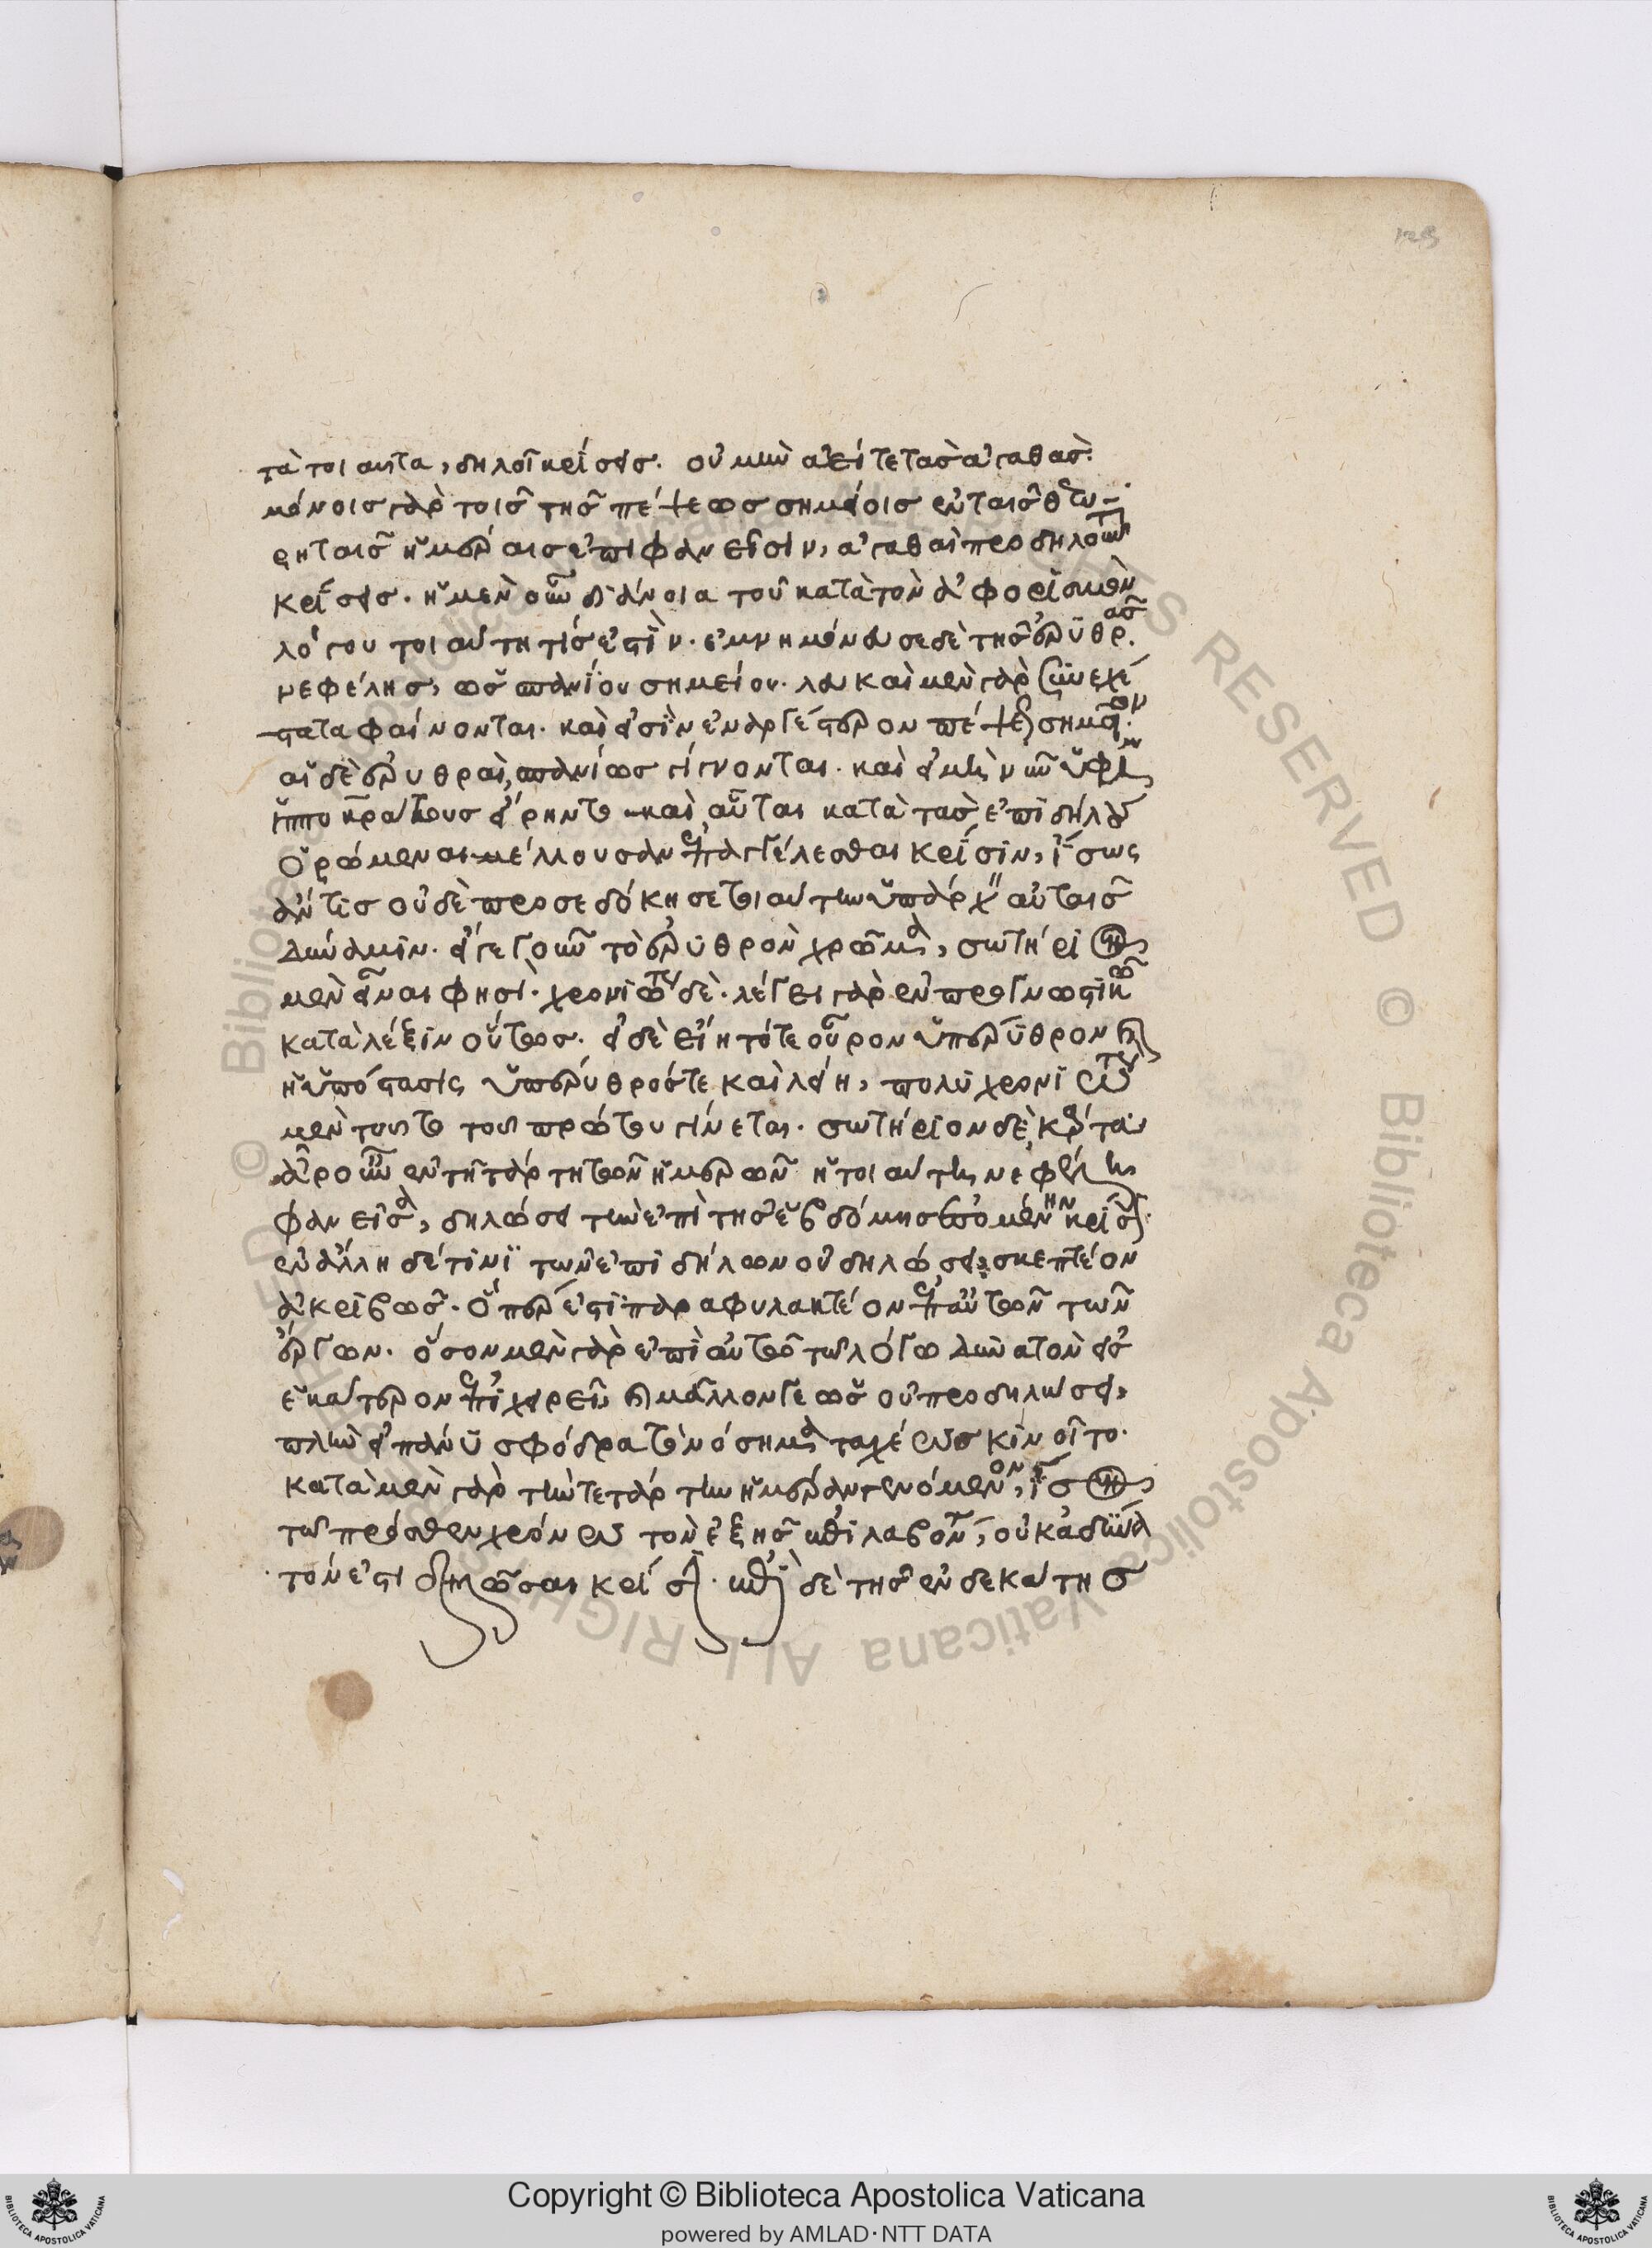 τὰ τοιαῦτα, δηλοῖ κρίσεις. οὐ μὴν ἀεί τε τὰς ἀγαθάς.
μόνοις γὰρ τοῖς τῆς πέψεως σημείοις ἐν ταῖς θεω-
ρηταῖς ἡμέραις ἐπιφανεῖσιν, ἀγαθαὶ προδηλοῦνται
κρίσεις. ἡ μὲν οὖν διάνοια τοῦ κατὰ τὸν ἀφορισμὸν
λόγου τοιαύτη τίς ἐστϊν. ἐμνημόνευσε δὲ τῆς ἐρυθρᾶς
νεφέλης, ὡς σπανίου σημείου. λευκαὶ μὲν γὰρ συνεχέ
στατα φαίνονται. καὶ εἰσὶν ἐναργέστερον πέψεως σημεῖον.
αἱ δὲ ἐρυθραὶ, σπανίως γίγνονται. καὶ εἰ μὴ νῦν ὑφ'
ἱπποκράτους εἴρηντο καὶ αὗται κατὰ τὰς ἐπιδήλους
ὁρώμεναι μέλλουσαν ἐπαγγέλεσθαι κρίσιν, ἴσως
ἄν τις οὐδὲ προσεδόκησε τοιαύτην ὑπάρχειν αὐταῖς
δύναμιν. εἴγε γοῦν τὸ ἐρυθρὸν χρῶμα, σωτήριον
μὲν εἶναι φησί. χρονιώτερον δὲ. λέγει γὰρ ἐν προγνωστικῷ
κατὰ λέξιν οὕτως. εἰ δὲ εἴη τό τε οὖρον ὑπέρυθρον καὶ
ἡ ὑπόστασις ὑπέρυθρός τε καὶ λείη, πολυχρονιώτερον
μὲν τοῦτο τοῦ πρώτου γίνεται. σωτήριον δὲ κάρτα
ἆρ' οὖν ἐν τῇ τετάρτῃ τῶν ἡμερῶν ἡ τοιαύτη νεφέλη
φανεῖσα, δηλώσει τὴν ἐπὶ τῆς ἑβδόμης ἐσομένην κρίσιν.
ἐν ἄλλη δέ τινϊ τῶν ἐπιδήλων οὐ δηλώσει; σκεπτέον
ἀκριβῶς. ὅπέρ ἐστϊ παραφυλακτέον ἐπ' αὐτῶν τῶν
ἔργων. ὅσον μὲν γὰρ ἐπὶ αὐτῷ τῷ λόγω δυνατὸν εἰς
ἑκάτερον ἐπιχειρεῖν, καὶ μᾶλλον γε ὡς οὐ προδηλώσει,
πλὴν εἰ πάνυ σφόδρα τὸ νόσημα ταχέως κινοῖτο.
κατὰ μὲν γὰρ τὴν τετάρτην ἡμέραν γενόμενον, ἴσον
τῷ πρόσθεν χρόνω τὸν ἑξῆς μεταλαβὸν, οὐκ ἀδύνα
τόν ἐστι δηλῶσαι κρίσιν. μετὰ δὲ τῆς ἑνδεκάτης